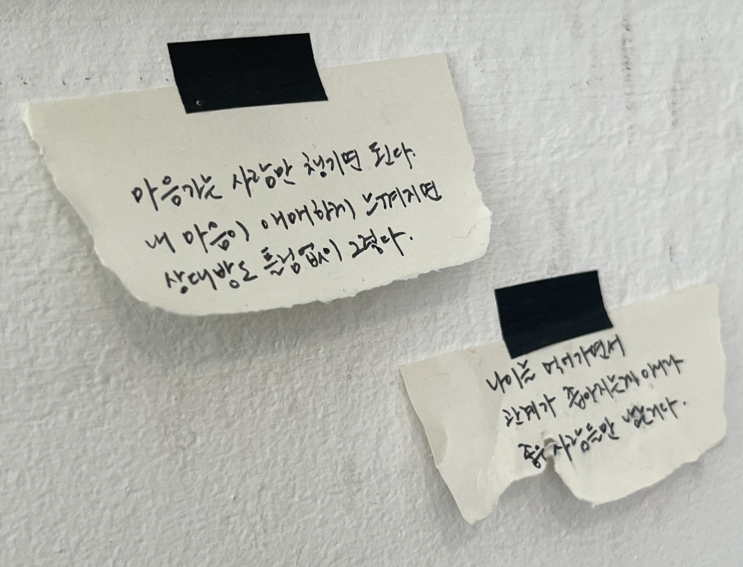 마음가는 사람만 챙기면 된다.
내 마음이 애매하게 느껴지면
상대방도 틀림없이 그렇다.
나이를 먹어가면서
관계가 좁아지는게 아니라
좋은 사람들만 남는다.